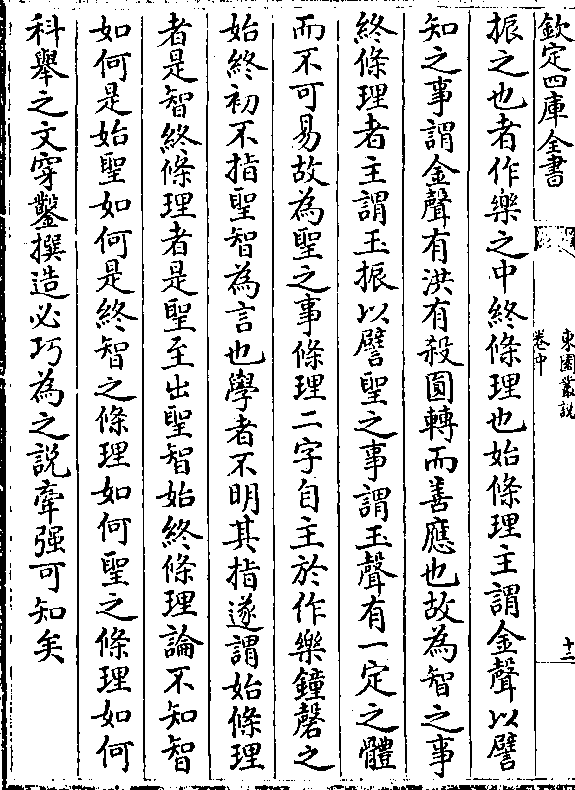 欽定四庫全書
東園叢説
卷中
十二
振之也者作樂之中終條理也始條理主謂金聲以譬
知之事謂金聲有洪有殺圓轉而善應也故為智之事
終條理者主謂玉振以譬聖之事謂玉聲有一定之體
而不可易故為聖之事條理二字自主於作樂鐘磬之
始終初不指聖智為言也學者不明其指遂謂始條理
者是智終條理者是聖至出聖智始終條理論不知智
如何是始聖如何是終智之條理如何聖之條理如何
科舉之文穿鑿撰造必巧為之說牽强可知矣